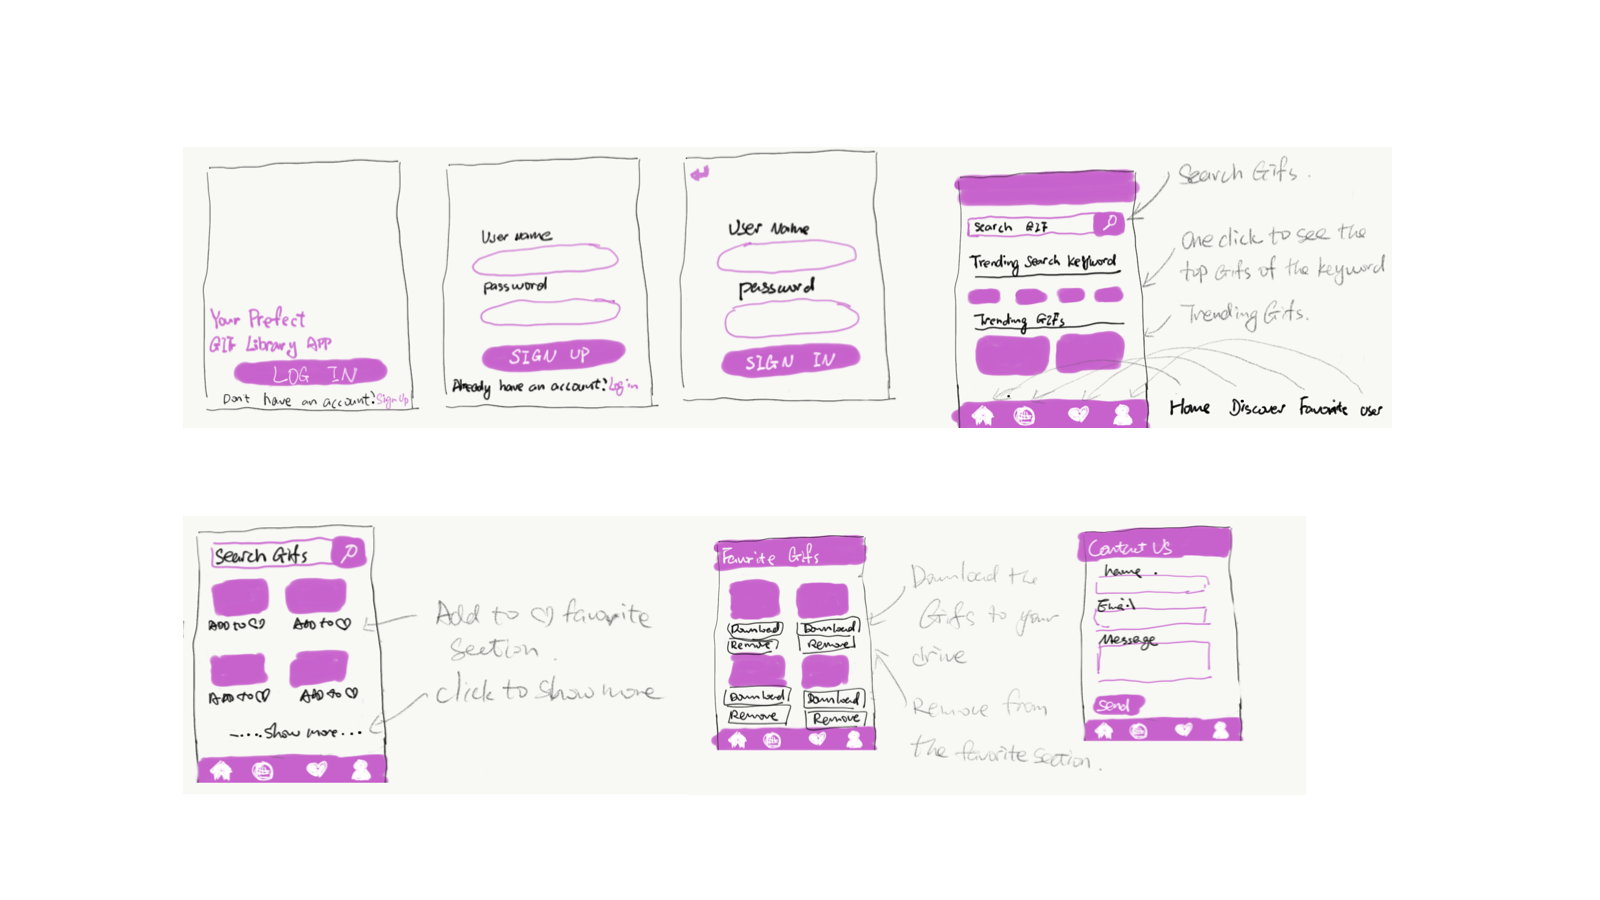 Your Prefect
GIF Library APP
LOG IN
Don't have an account? Sign Up
User name
password
SIGN UP
Already have an account? Log in
User Name
password
SIGN IN
Search GIF
Trending Search Keyword
Trending GIFs
Search Gifs.
One click to see the
top Gifs of the keyword
Trending Gifs.
Home Discover Favorite user
Search Gifs
Add to
Add to
Add to
Add to
-....Show more...
Add to favorite
section.
click to show more
Favorite Gifs
Download
Download
Remove
Remove
Download
Download
Remove
Remove
Download the
Gifs to your
drive
Remove from
the favorite section.
Contact US
name.
Email
Message
Send